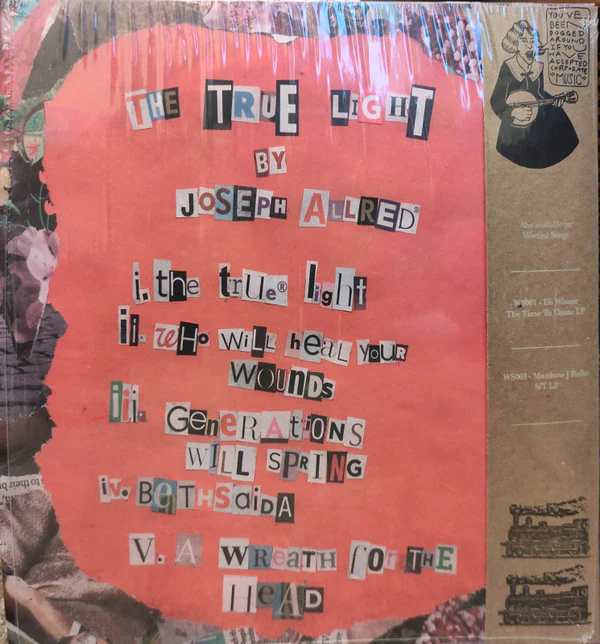 THE TRUE LIGHT
BY
JOSEPH ALLRED®
i. the true® light
ii. who will heal your
wounds
iii. Generations
will spring
iv. Bethsaida
V. A wreath for the
Head
YOU'VE
BEEN
DOGGED
AROUND
IF YOU
HAVE
ACCEPTED
CORPORATE
MUSIC
Also available on
Worried Songs
WS001 - Eli Winter
The Time To Come LP
WS003 - Matthew J Rolin
S/T LP
to their